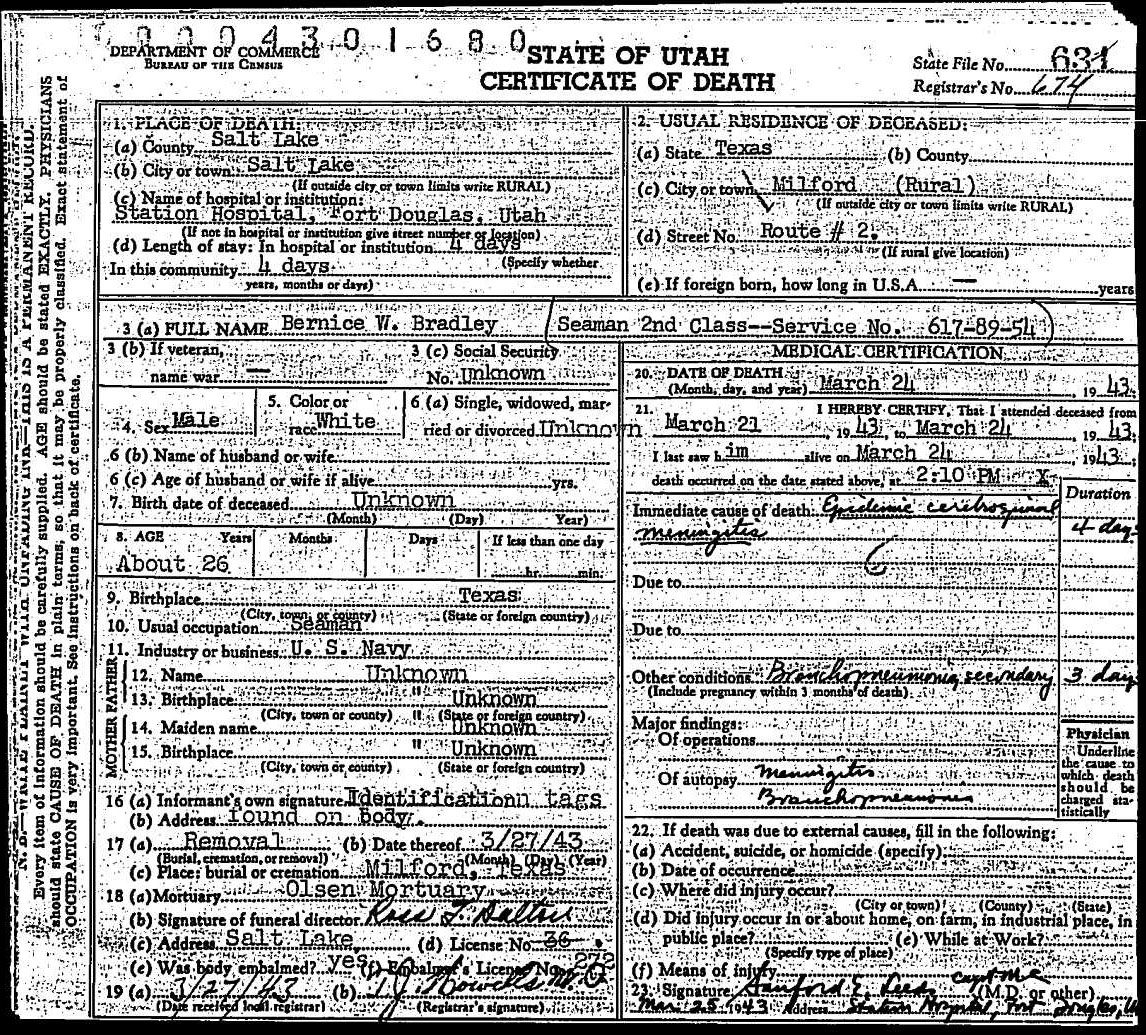 0004301680
DEPARTMENT OF COMMERCE
BUREAU OF THE CENSUS
STATE OF UTAH
CERTIFICATE OF DEATH
State File No. 631
Registrar's No. 674
N. B.—WRITE PLAINLY WITH UNFADING INK—THIS IS A PERMANENT RECORD.
Every item of information should be carefully supplied. AGE should be stated EXACTLY. PHYSICIANS
should state CAUSE OF DEATH in plain terms, so that it may be properly classified. Exact statement of
OCCUPATION is very important. See instructions on back of certificate.
1. PLACE OF DEATH:
(a) County Salt Lake
(b) City or town Salt Lake
(If outside city or town limits write RURAL)
(c) Name of hospital or institution:
Station Hospital, Fort Douglas, Utah
(If not in hospital or institution give street number or location)
(d) Length of stay: In hospital or institution 4 days
(Specify whether
In this community 4 days
years, months or days)
2. USUAL RESIDENCE OF DECEASED:
(a) State Texas (b) County
(c) City or town Milford (Rural)
(If outside city or town limits write RURAL)
(d) Street No. Route # 2.
(If rural give location)
(e) If foreign born, how long in U.S.A. — years
3 (a) FULL NAME Bernice W. Bradley (Seaman 2nd Class--Service No. 617-89-54)
3 (b) If veteran,
name war —
3 (c) Social Security
No. unknown
4. Sex Male
5. Color or
race White
6 (a) Single, widowed, mar-
ried or divorced Unknown
6 (b) Name of husband or wife
6 (c) Age of husband or wife if alive yrs.
7. Birth date of deceased Unknown
(Month) (Day) (Year)
8. AGE Years Months Days If less than one day
About 26 hr. min.
9. Birthplace Texas
(City, town, or county) (State or foreign country)
10. Usual occupation Seaman
11. Industry or business U. S. Navy
FATHER
12. Name Unknown
13. Birthplace " Unknown
(City, town or county) (State or foreign country)
MOTHER
14. Maiden name " Unknown
15. Birthplace " Unknown
(City, town or county) (State or foreign country)
16 (a) Informant's own signature Identification tags
(b) Address found on body.
17 (a) Removal (b) Date thereof 3/27/43
(Burial, cremation, or removal) (Month) (Day) (Year)
(c) Place: burial or cremation Milford, Texas
18 (a) Mortuary Olsen Mortuary
(b) Signature of funeral director Ross T. Dalton
(c) Address Salt Lake, (d) License No. 36
(e) Was body embalmed? yes (f) Embalmer's License No. 272
19 (a) 3/27/43 (b) T J Howells M.D
(Date received local registrar) (Registrar's signature)
MEDICAL CERTIFICATION
20. DATE OF DEATH
(Month, day, and year) March 24, 1943.
21. I HEREBY CERTIFY, That I attended deceased from
March 21, 1943, to March 24, 1943.
I last saw him alive on March 24, 1943.
death occurred on the date stated above, at 2:10 PM X
Duration
Immediate cause of death Epidemic cerebrospinal 4 day
meningitis
6
Due to
Due to
Other conditions Bronchopneumonia, secondary 3 day
(Include pregnancy within 3 months of death)
Major findings:
Of operations
Of autopsy Meningitis
Bronchopneumonia
Physician
Underline
the cause to
which death
should be
charged sta-
tistically
22. If death was due to external causes, fill in the following:
(a) Accident, suicide, or homicide (specify)
(b) Date of occurrence
(c) Where did injury occur?
(City or town) (County) (State)
(d) Did injury occur in or about home, on farm, in industrial place, in
public place? (e) While at Work?
(Specify type of place)
(f) Means of injury
23. Signature Sanford E. Leeds Capt MC
(M.D. or other)
Mar. 25 1943 Address Station Hospital, Fort Douglas, U